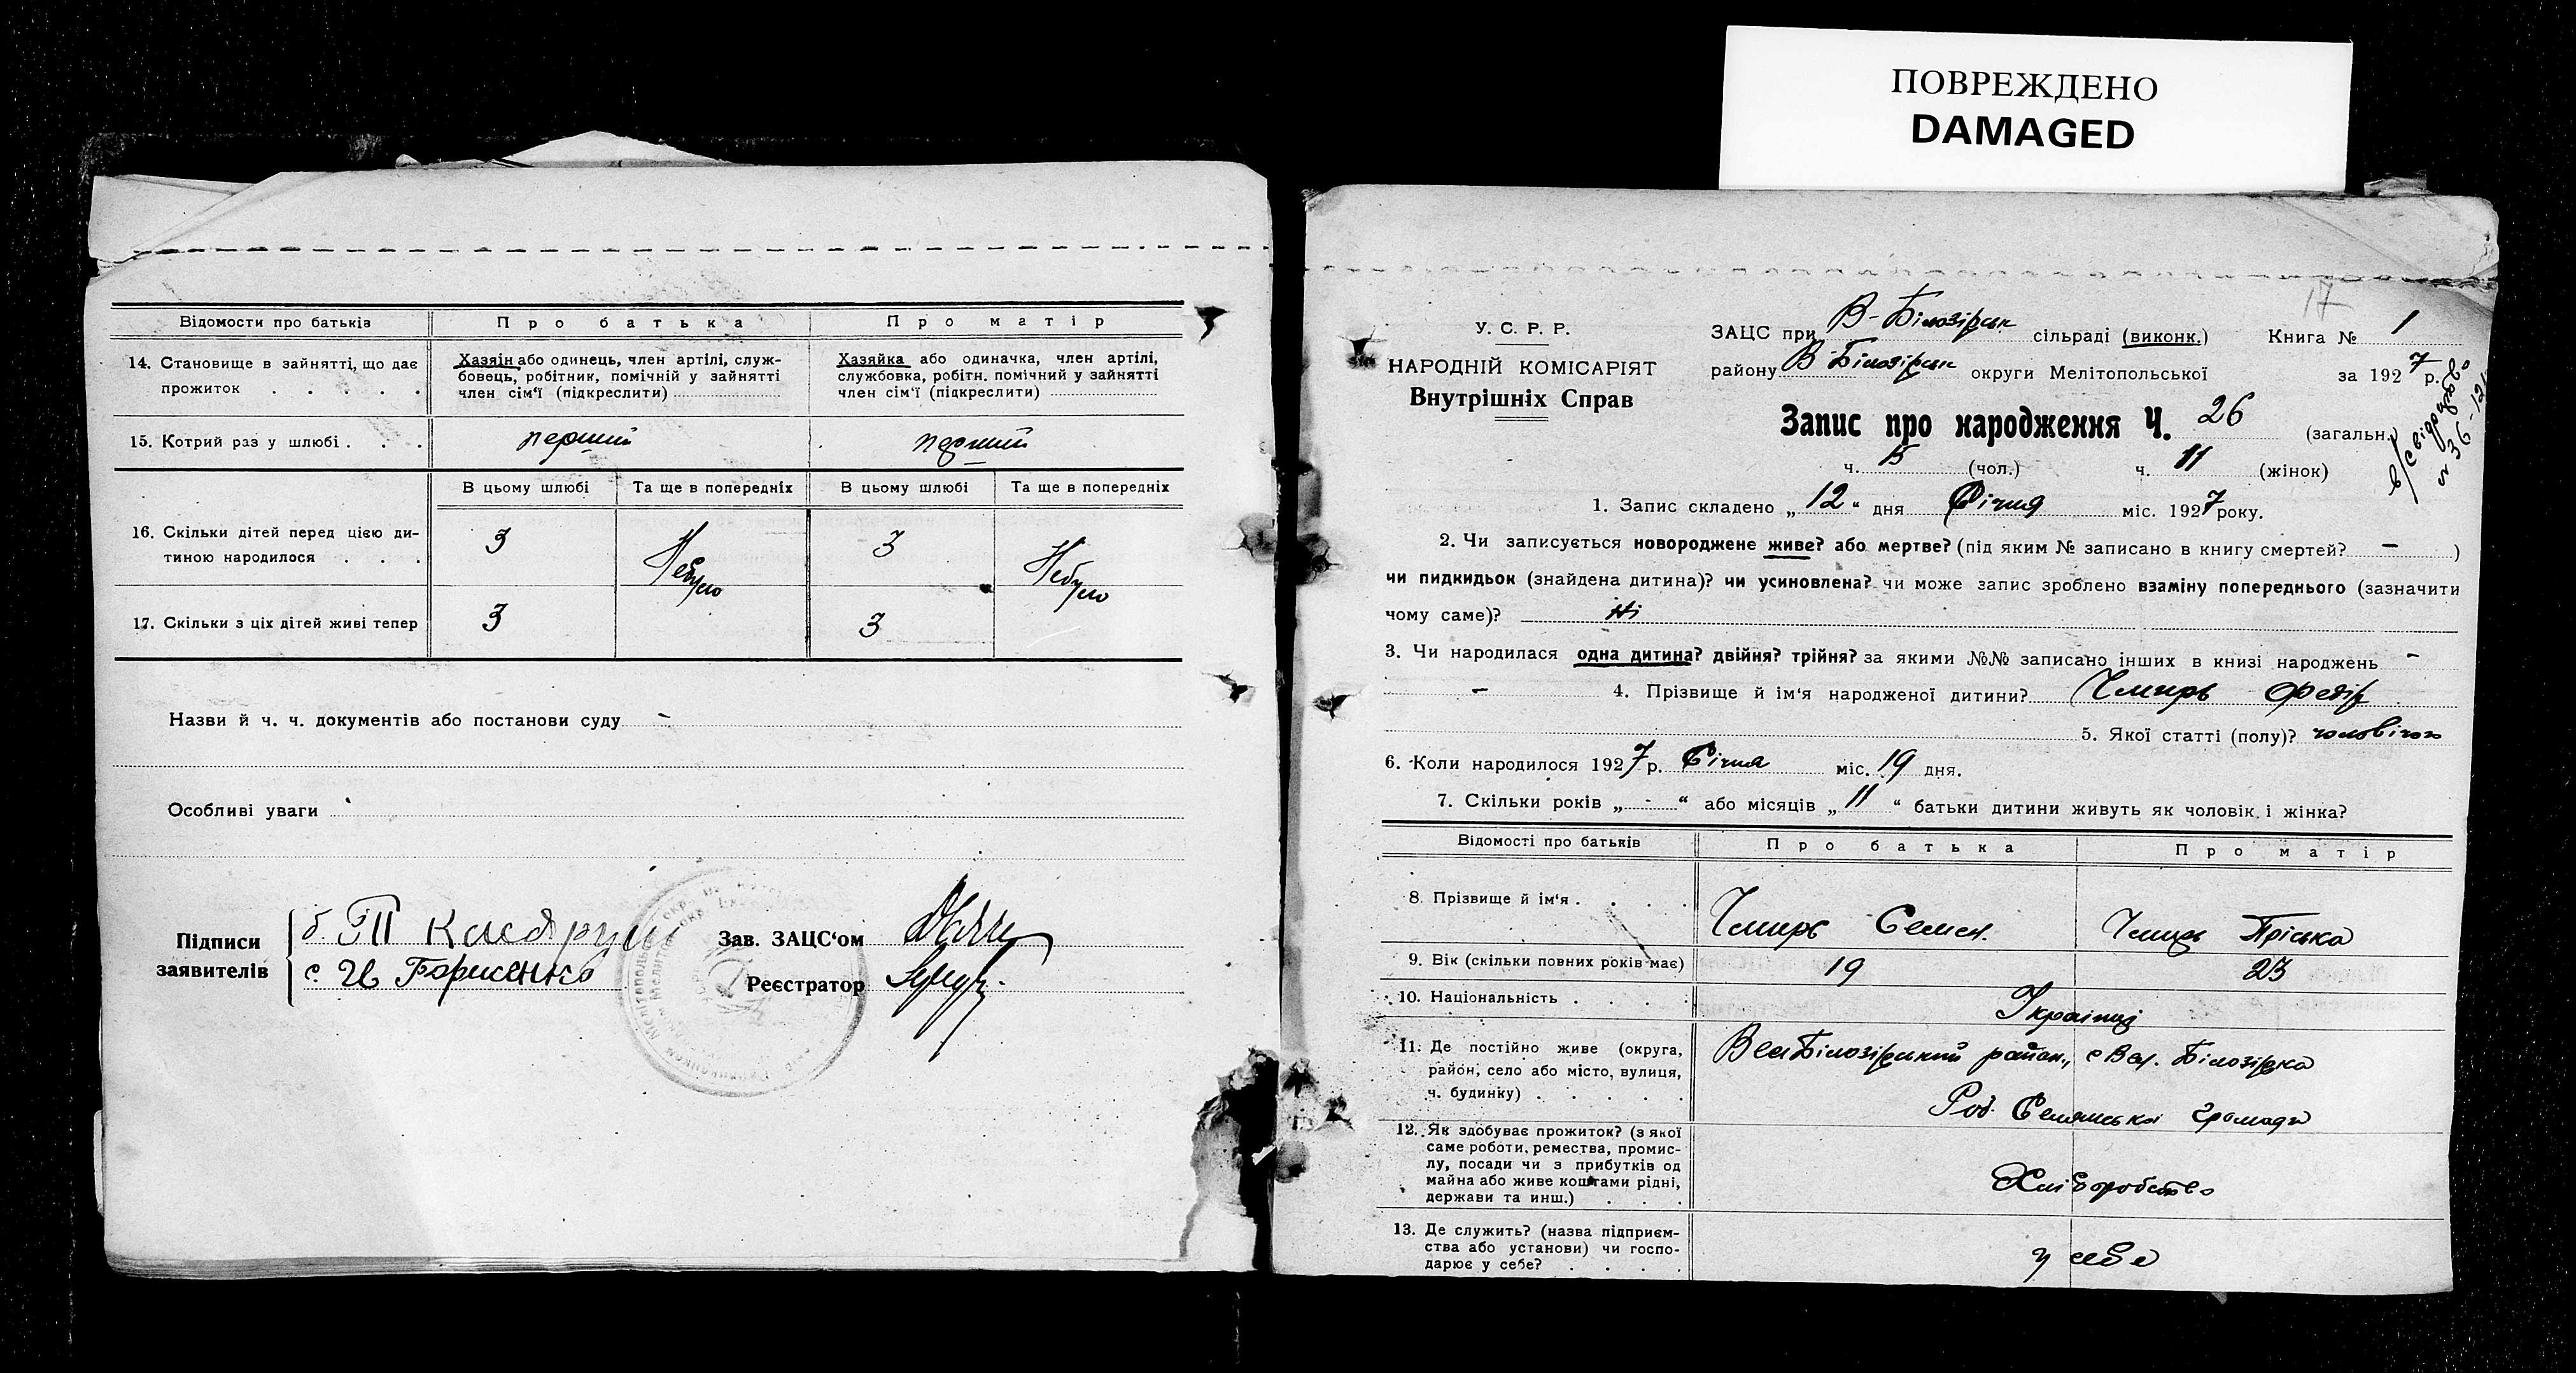 ПОВРЕЖДЕНО
DAMAGED
Відомости про батьків
Про батька
Про матір
14. Становище в зайнятті, що дає прожиток . . . . .
Хазяїн або одинець, член артілі, служ-
бовець, робітник, помічній у зайнятті
член сім'ї (підкреслити)
Хазяйка або одиначка, член артілі,
службовка, робітн. помічний у зайнятті
член сім'ї (підкреслити)
15. Котрий раз у шлюбі . . .
перший
перший
В цьому шлюбі
Та ще в попередніх
В цьому шлюбі
Та ще в попередніх
16. Скільки дітей перед цією ди-
тиною народилося . . .
3
Небуло
3
Небуло
17. Скільки з ціх дітей живі тепер
3
3
Назви й ч. ч. документів або постанови суду -
Особливі уваги
Підписи
заявителів
Зав. ЗАЦС'ом
с. Борисенко
Реєстратор
17
У. С. Р. Р.
НАРОДНІЙ КОМІСАРІЯТ
Внутрішніх Справ
ЗАЦС при В-Білозірськ сільраді (виконк.)
Книга № 1
району В Білозірськ округи Мелітопольської
за 1927 р.
Запис про народження Ч. 26 (загальн.)
ч. 15 (чол.) ч. 11 (жінок)
1. Запис складено „12" дня Січня міс. 1927 року.
2. Чи записується новороджене живе? або мертве? (під яким № записано в книгу смертей? - )
чи пидкидьок (знайдена дитина)? чи усиновлена? чи може запис зроблено взаміну попереднього (зазначити
чому саме)? Ні
3. Чи народилася одна дитина? двійня? трійня? за якими №№ записано інших в книзі народжень -
- 4. Прізвище й ім'я народженої дитини? Чмирь Федір
5. Якої статті (полу)? чоловічої
6. Коли народилося 1927 р. Січня міс. 19 дня.
7. Скільки років „ - " або місяців „ 11 " батьки дитини живуть як чоловік і жінка?
Відомості про батьків
Про батька
Про матір
8. Прізвище й ім'я . . . .
Чмирь Семен.
Чмирь Пріська
9. Вік (скільки повних років має)
19
23
10. Національність . . . .
Українці
11. Де постійно живе (округа,
район, село або місто, вулиця,
ч. будинку) . . . . .
Вел Білозірський район, с Вел. Білозірка
Селянської громади
12. Як здобуває прожиток? (з якої
саме роботи, ремества, промис-
лу, посади чи з прибутків од
майна або живе коштами рідні,
держави та инш.) . . .
Хліборобство
13. Де служить? (назва підприєм-
ства або установи) чи госпо-
дарює у себе? . . . .
у себе